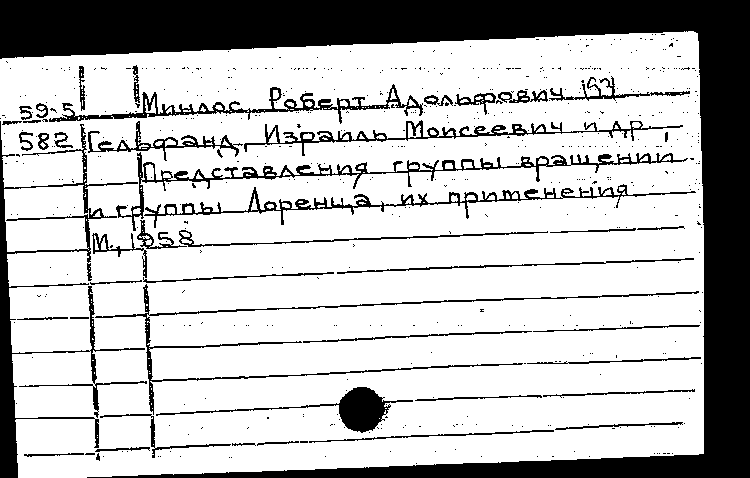 59-5 Минлос, Роберт Адольфович
582 Гельфанд, Израиль Моисеевич и др,
Представления группы вращении
и группы Лоренца, их применения
М., 1958